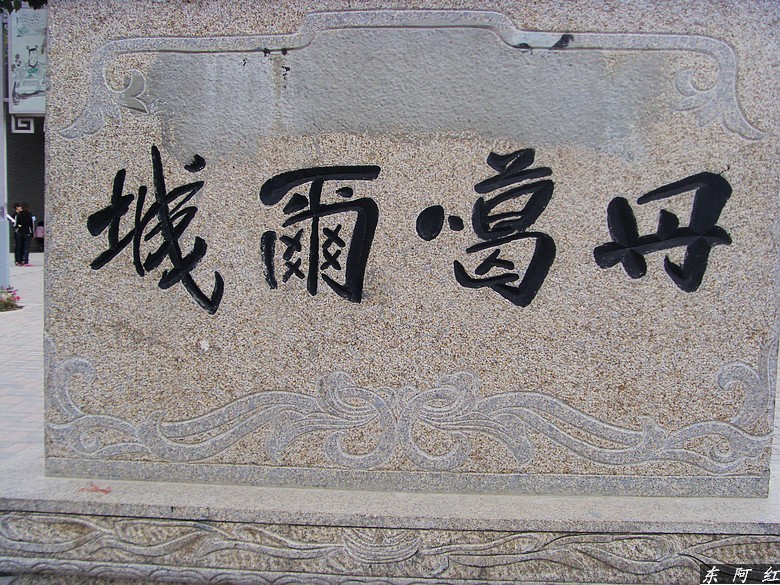 丹噶爾城
东阿红